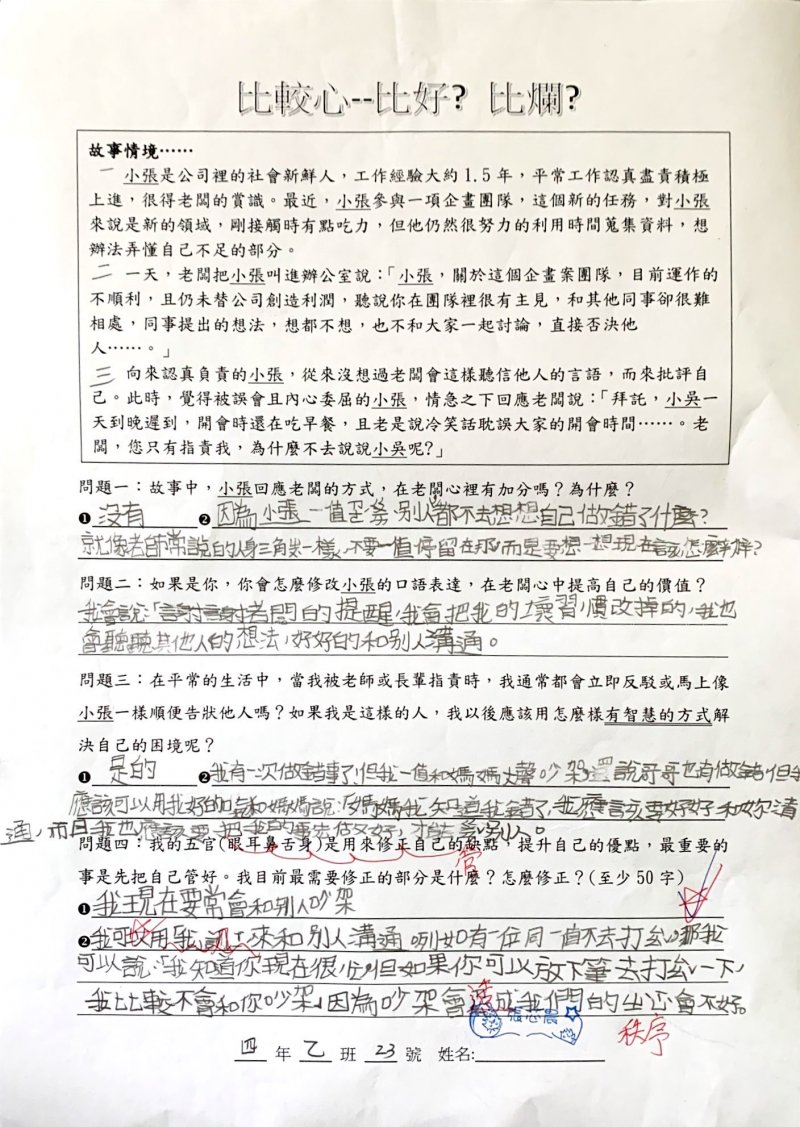 比較心--比好? 比爛?
故事情境……
一 小張是公司裡的社會新鮮人，工作經驗大約 1.5 年，平常工作認真盡責積極
上進，很得老闆的賞識。最近，小張參與一項企畫團隊，這個新的任務，對小張
來說是新的領域，剛接觸時有點吃力，但他仍然很努力的利用時間蒐集資料，想
辦法弄懂自己不足的部分。
二 一天，老闆把小張叫進辦公室說：「小張，關於這個企畫案團隊，目前運作的
不順利，且仍未替公司創造利潤，聽說你在團隊裡很有主見，和其他同事卻很難
相處，同事提出的想法，想都不想，也不和大家一起討論，直接否決他
人……。」
三 向來認真負責的小張，從來沒想過老闆會這樣聽信他人的言語，而來批評自
己。此時，覺得被誤會且內心委屈的小張，情急之下回應老闆說：「拜託，小吳一
天到晚遲到，開會時還在吃早餐，且老是說冷笑話耽誤大家的開會時間……。老
闆，您只有指責我，為什麼不去說說小吳呢?」
問題一：故事中，小張回應老闆的方式，在老闆心裡有加分嗎？為什麼？
❶ 沒有 ❷ 因為小張一值歪 別人都不去想想自己做錯了什麼？
就像老師常說的人身三角 一樣，不要一值停留在那而是要想一想現在該怎麼 ？
問題二：如果是你，你會怎麼修改小張的口語表達，在老闆心中提高自己的價值？
我會說：「謝謝老闆的提醒，我會把我的壞習慣改掉的，我也
會聽聽其他人的想法，好好的和別人溝通。
問題三：在平常的生活中，當我被老師或長輩指責時，我通常都會立即反駁或馬上像
小張一樣順便告狀他人嗎？如果我是這樣的人，我以後應該用怎麼樣有智慧的方式解
決自己的困境呢？
❶ 是的 ❷ 我有一次做錯事了，但我一值和媽媽大聲吵架，還說哥哥也有做錯，但我
應該可以用我好的 和媽媽說：「媽媽我知道我錯了，我應該要好好和妳溝
通，而且我也應該要把我的事去做好，才 別人。
問題四：我的五官(眼耳鼻舌身)是用來修正自己的缺點，提升自己的優點，最重要的
管
事是先把自己管好。我目前最需要修正的部分是什麼？怎麼修正？(至少 50 字)
❶ 我現在要常會和別人吵架
❷ 我可以用「我訊」，來和別人溝通，例如有一位同一值不去打 ，那我
可以說：「我知道你現在很忙，但如果你可以放下筆去打 一下，
我比較不會和你吵架」因為吵架會造成我們的 會不好。
張芯晨
秩序
四 年 乙 班 23 號 姓名: